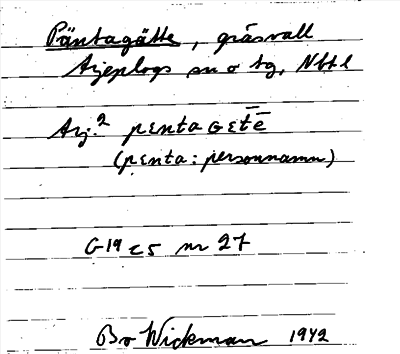 Päntagätte, gräsvall
Arjeplogs sn o tg, Nbtl
Arj.2 pɛntaɢɛt̄ē
(pɛnta: personnamn)
G19 c5 nr 27
Bo Wickman 1942